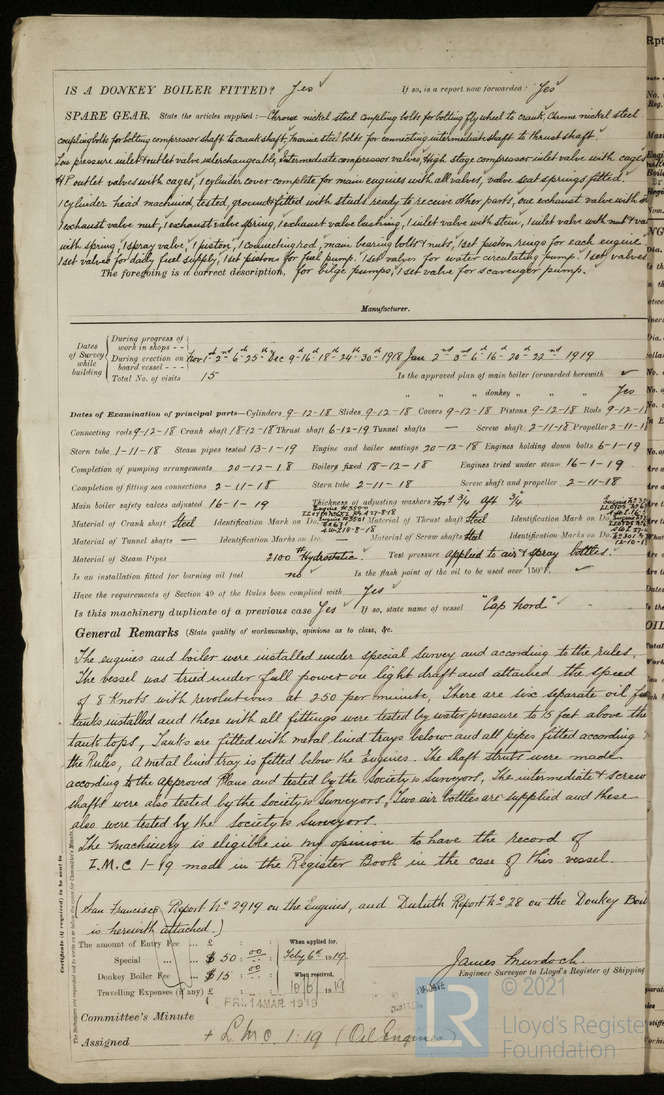 IS A DONKEY BOILER FITTED? Yes If so, is a report now forwarded? Yes
SPARE GEAR. State the articles supplied:— Chrome nickel steel coupling bolts for bolting flywheel to crank, Chrome nickel steel
coupling bolts for bolting compressor shaft to crank shaft, Marine steel bolts for connecting intermediate shaft to thrust shaft.
Low pressure inlet & outlet valve interchangeable, Intermediate compressor valves, High stage compressor inlet valve with cages
HP outlet valves with cages, 1 cylinder cover complete for main engines with all valves, valve seat springs fitted.
1 cylinder head machined, tested, ground & fitted with studs ready to receive other parts, one exhaust valve with
1 exhaust valve nut, 1 exhaust valve spring, 1 exhaust valve bushing, 1 inlet valve with stem, 1 inlet valve with nut &
with spring, 1 spray valve, 1 piston, 1 connecting rod, main bearing bolts & nuts, 1 set piston rings for each engine
1 set valves for daily fuel supply, 1 set pistons for fuel pump. 1 set valves for water circulating pump. 1 set valves
The foregoing is a correct description, for bilge pumps, 1 set valve for scavenger pump.
Manufacturer.
Dates of Survey while building
During progress of work in shops - -
During erection on board vessel - - - Nov 1st 2nd 6th 25th Dec 9th 16th 18th 24th 30th 1918 Jan 2nd 3rd 6th 16th 20th 22nd 1919
Total No. of visits 15 Is the approved plan of main boiler forwarded herewith
" " " donkey " " " Yes
Dates of Examination of principal parts—Cylinders 9-12-18 Slides 9-12-18 Covers 9-12-18 Pistons 9-12-18 Rods 9-12-1
Connecting rods 9-12-18 Crank shaft 18-12-18 Thrust shaft 6-12-19 Tunnel shafts — Screw shaft 2-11-18 Propeller 2-11-1
Stern tube 1-11-18 Steam pipes tested 13-1-19 Engine and boiler seatings 20-12-18 Engines holding down bolts 6-1-19
Completion of pumping arrangements 20-12-18 Boilers fixed 18-12-18 Engines tried under steam 16-1-19
Completion of fitting sea connections 2-11-18 Stern tube 2-11-18 Screw shaft and propeller 2-11-18
Main boiler safety valves adjusted 16-1-19 Thickness of adjusting washers For'd 3/4 Aft 3/4
Material of Crank shaft Steel Identification Mark on Do. Material of Thrust shaft Steel Identification Mark on Do.
Material of Tunnel shafts — Identification Marks on Do. — Material of Screw shafts Steel Identification Marks on Do.
Material of Steam Pipes 2100# Hydrostatic Test pressure applied to air & spray bottles.
Is an installation fitted for burning oil fuel no Is the flash point of the oil to be used over 150°F.
Have the requirements of Section 49 of the Rules been complied with Yes
Is this machinery duplicate of a previous case Yes If so, state name of vessel "Cap Nord"
General Remarks (State quality of workmanship, opinions as to class, &c.
The engines and boiler were installed under special survey and according to the rules,
The vessel was tried under full power on light draft and attained the speed
of 8 Knots with revolutions at 250 per minute, There are six separate oil fuel
tanks installed and these with all fittings were tested by water pressure to 15 feet above the
tank tops, Tanks are fitted with metal lined trays below and all pipes fitted according
the Rules, A metal lined tray is fitted below the Engines. The shaft struts were made
according to the approved Plans and tested by the Society's surveyors, The intermediate & screw
shafts were also tested by the Society's Surveyors, Two air bottles are supplied and these
also were tested by the Society's Surveyors.
The machinery is eligible in my opinion to have the record of
L.M.C 1-19 made in the Register Book in the case of this vessel.
(San Francisco Report No 2919 on the Engines, and Duluth Report No 28 on the Donkey Boil
is herewith attached.)
The amount of Entry Fee ... £ : : When applied for,
Special ... ... $ 50 : 00 : Feby 6th 1919.
Donkey Boiler Fee ... $ 15 : 00 : When received,
Travelling Expenses (if any) £ : : 10/6/1919
James Murdoch.
Engineer Surveyor to Lloyd's Register of Shipping
FRI. 14 MAR. 1919
Committee's Minute
Assigned + L.M.C 1.19 (Oil Engines)
Certificate (if required) to be sent to
The Surveyors are requested not to write on or below the space for Committee's Minute.
© 2021
Lloyd's Register
Foundation